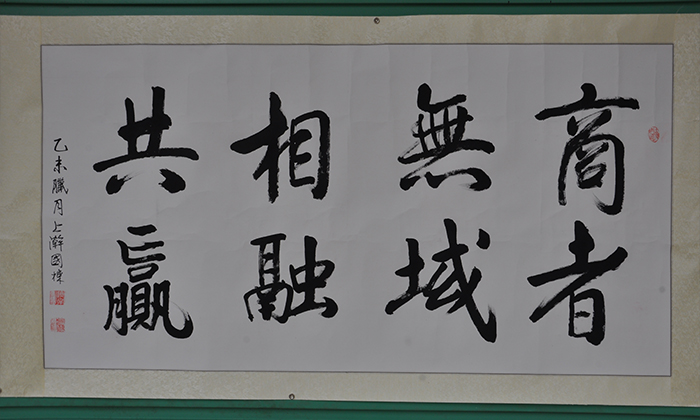 商者
無域
相融
共贏
乙未臘月上澣國棟